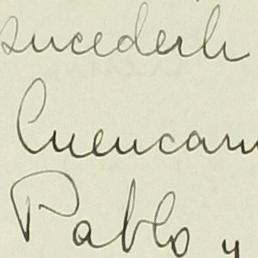 sucederle
Cuencam
Pablo y